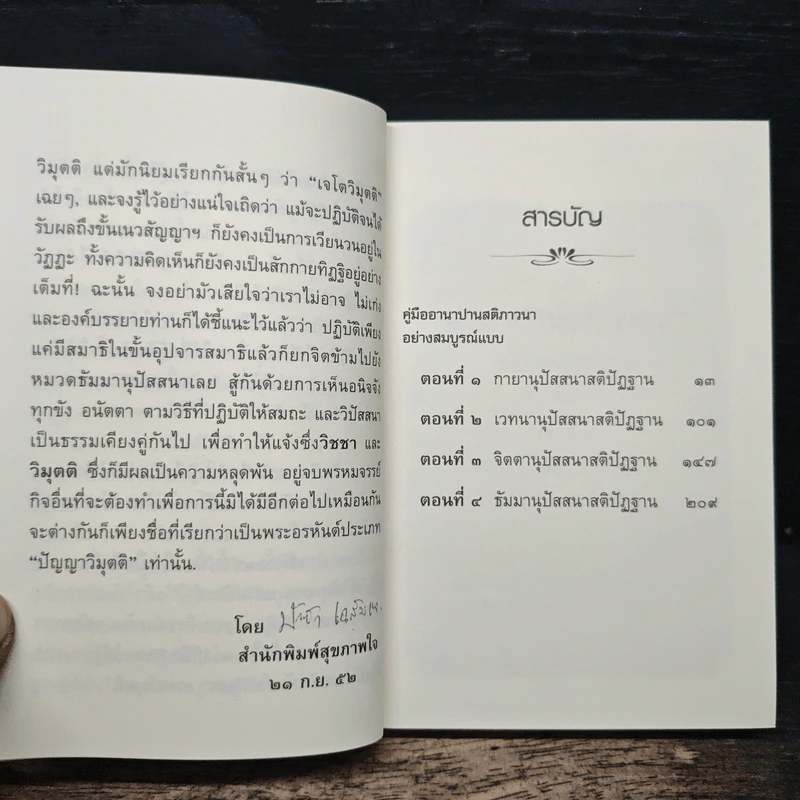 วิมุตติ แต่มักนิยมเรียกกันสั้นๆ ว่า “เจโตวิมุตติ”
เฉยๆ, และจงรู้ไว้อย่างแน่ใจเถิดว่า แม้จะปฏิบัติจนได้
รับผลถึงขั้นเนวสัญญาฯ ก็ยังคงเป็นการเวียนวนอยู่ใน
วัฏฏะ ทั้งความคิดเห็นก็ยังคงเป็นสักกายทิฏฐิอยู่อย่าง
เต็มที่! ฉะนั้น จงอย่ามัวเสียใจว่าเราไม่อาจ ไม่เก่ง
และองค์บรรยายท่านก็ได้ชี้แนะไว้แล้วว่า ปฏิบัติเพียง
แค่มีสมาธิในขั้นอุปจารสมาธิแล้วก็ยกจิตข้ามไปยัง
หมวดธัมมานุปัสสนาเลย สู้กันด้วยการเห็นอนิจจัง
ทุกขัง อนัตตา ตามวิธีที่ปฏิบัติให้สมถะ และวิปัสสนา
เป็นธรรมเคียงคู่กันไป เพื่อทำให้แจ้งซึ่งวิชชา และ
วิมุตติ ซึ่งก็มีผลเป็นความหลุดพ้น อยู่จบพรหมจรรย์
กิจอื่นที่จะต้องทำเพื่อการนี้มิได้มีอีกต่อไปเหมือนกัน
จะต่างกันก็เพียงชื่อที่เรียกว่าเป็นพระอรหันต์ประเภท
“ปัญญาวิมุตติ” เท่านั้น.
โดย
สำนักพิมพ์สุขภาพใจ
๒๑ ก.ย. ๕๒
สารบัญ
คู่มืออานาปานสติภาวนา
อย่างสมบูรณ์แบบ
ตอนที่ ๑ กายานุปัสสนาสติปัฏฐาน ๑๓
ตอนที่ ๒ เวทนานุปัสสนาสติปัฏฐาน ๑๐๑
ตอนที่ ๓ จิตตานุปัสสนาสติปัฏฐาน ๑๔๗
ตอนที่ ๔ ธัมมานุปัสสนาสติปัฏฐาน ๒๐๙